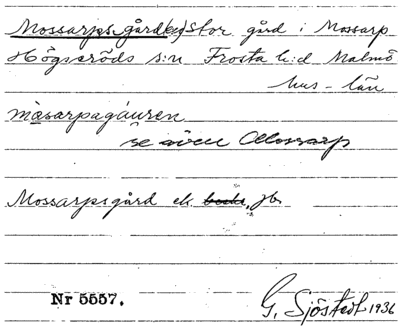 Mossarpsgård(en) Stor gård i Mossarp
Högseröds s:n Frosta h:d Malmö
hus-län
måsarpagáuren
se även Mossarp
Mossarpsgård ek
Nr 5557.
G. Sjöstedt 1936